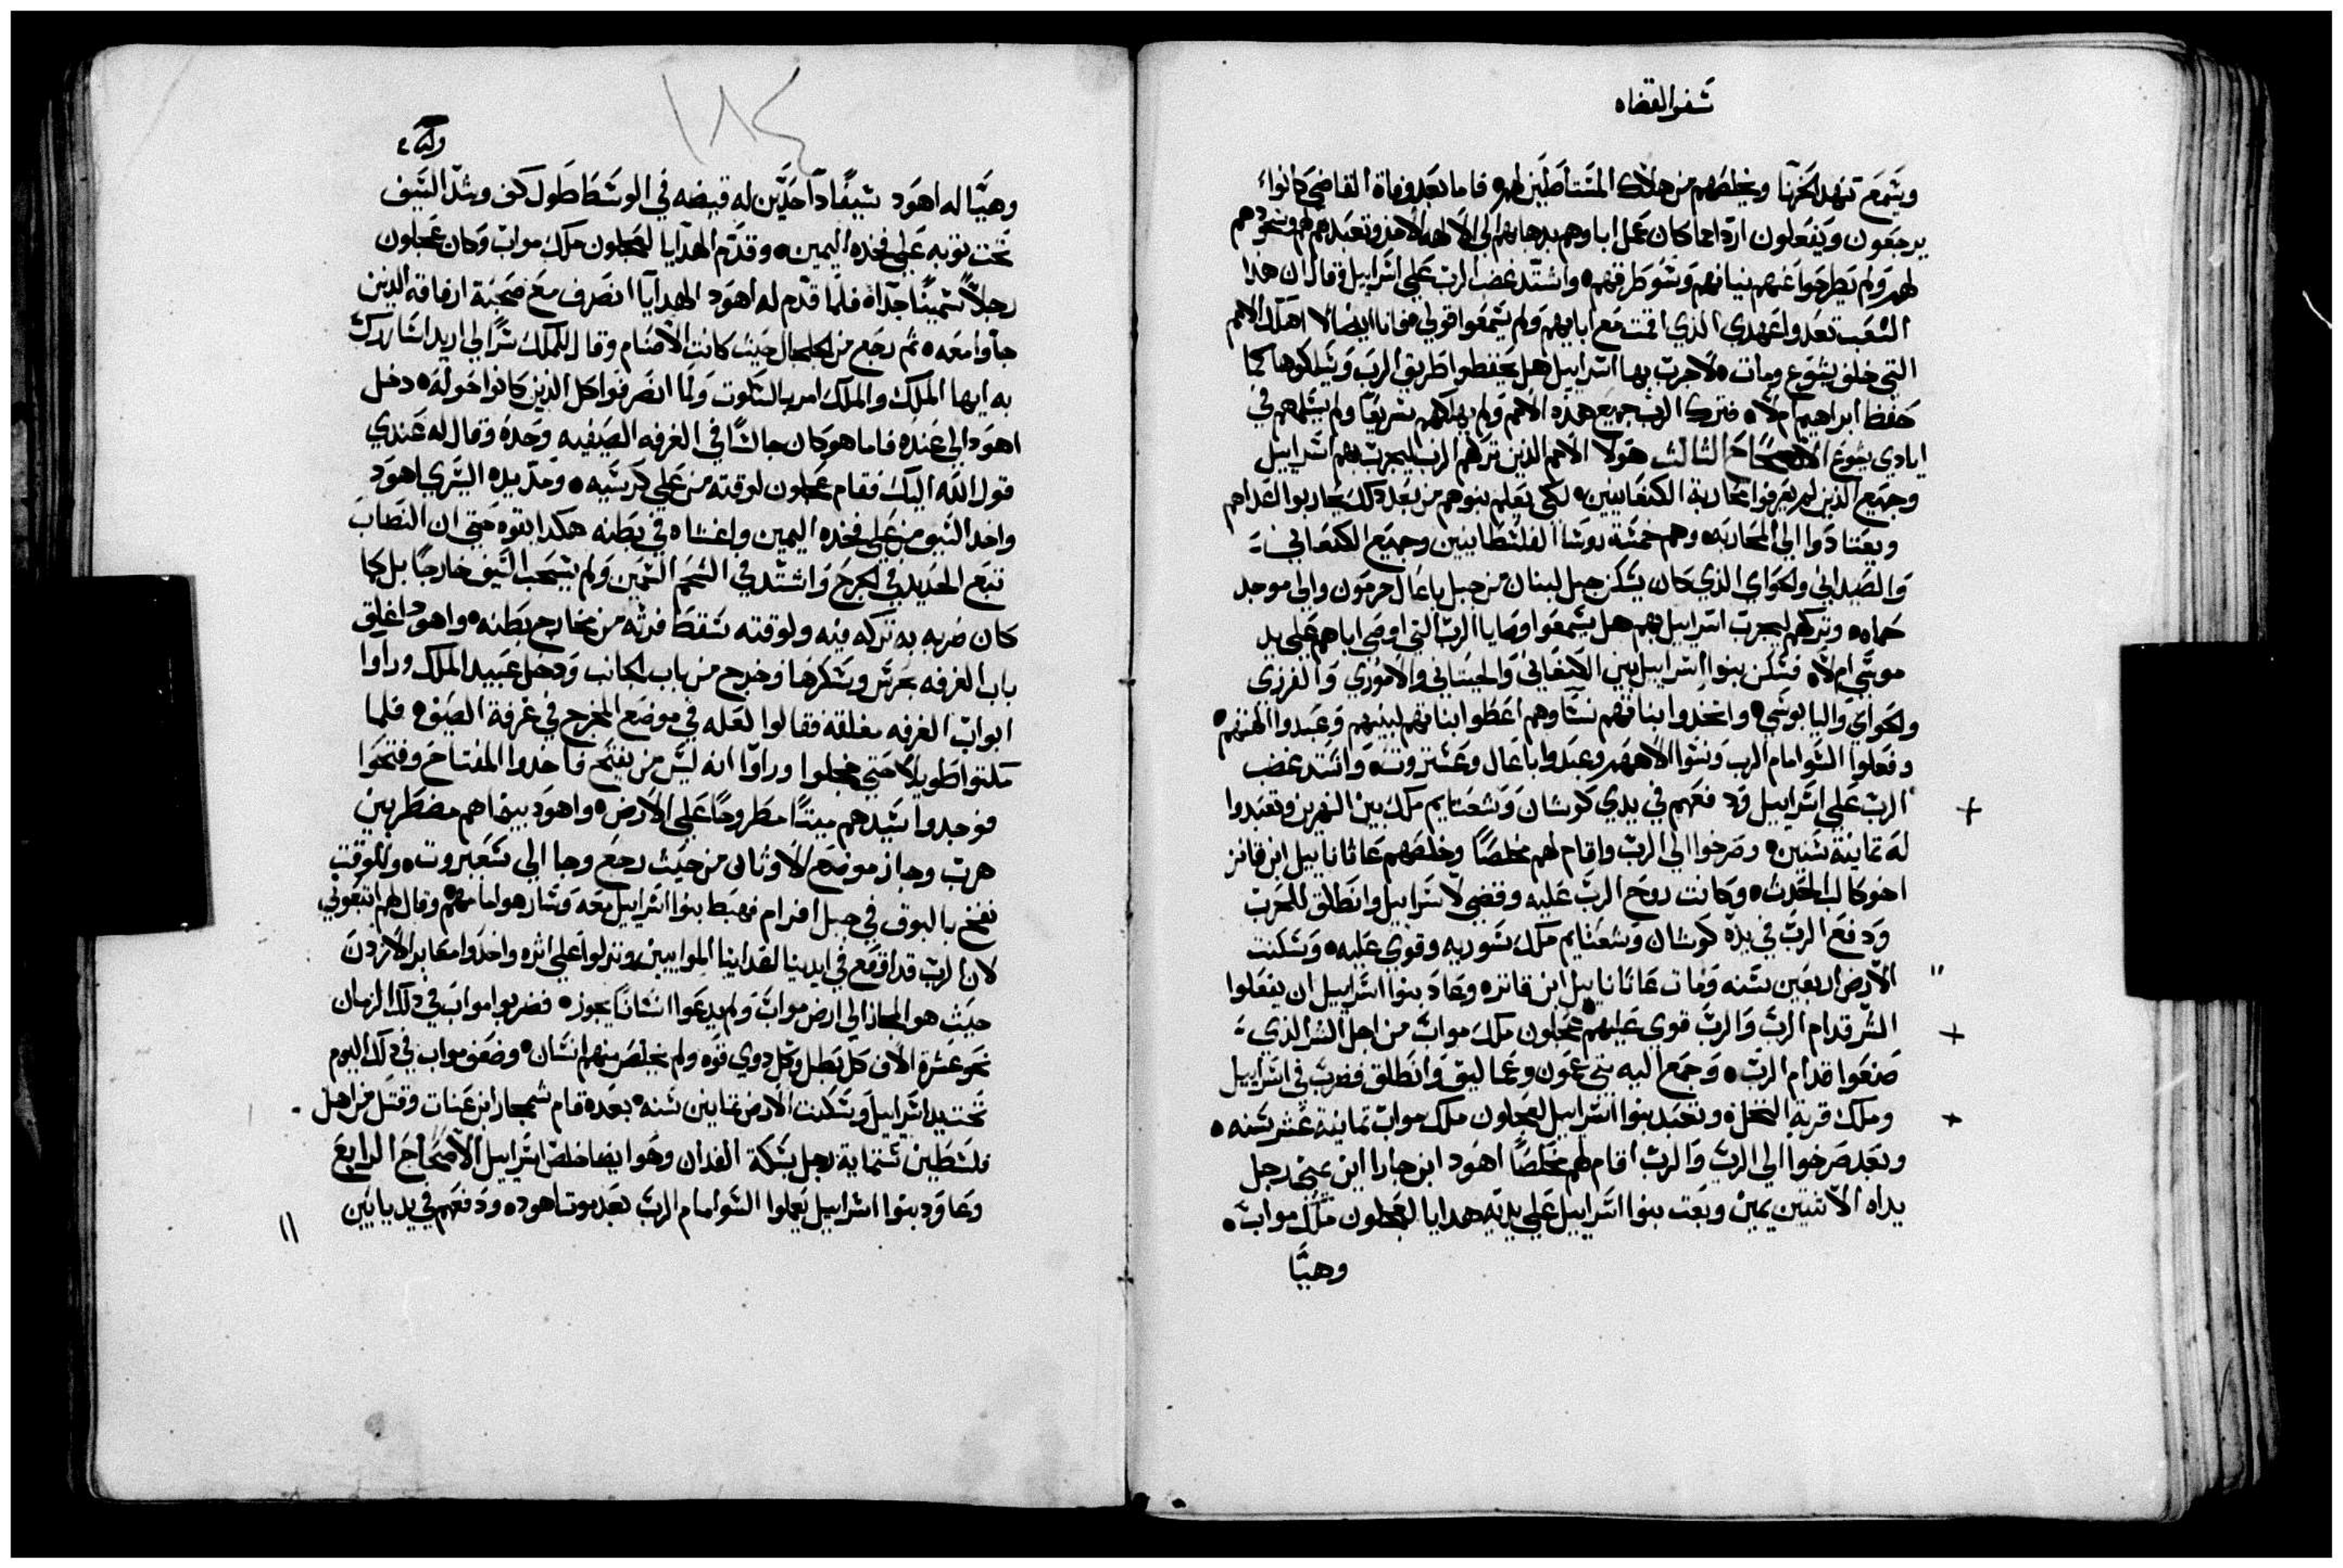 سفر القضاه
ويسمع تنهد الحزنا ويخلصهم من هلاك المستاصلين لهم فاما بعد وفاة القاضي كانوا
يرجعون ويفعلون اردا مما كان عمل اباوهم بدهابهم الى الالهه الاخر وتعبدهم لهم وسجودهم
لهم ولم يطرحوا عنهم نياتهم وسو طرقهم واشتد غضب الرب علي اسراييل وقال ان هذا
الشعب تعدوا عهدي الذي اقمت مع ابايهم ولم يسمعوا قولي فانا ايضا لا اهلك الامم
التي خلف يشوع ومات لاجرب بها اسراييل هل يحفظوا طريق الرب ويسلكوها كما
حفظ ابراهيم ام لا فترك الرب جميع هذه الامم ولم يهلكهم سريعا ولم يسلمهم في
ايادي يشوع الاصحاح الثالث هولا الامم الذين تركهم الرب ليجرب بهم اسراييل
وجميع الذين لم يعرفوا محاربة الكنعانيين لكي يعلم بنوهم من بعد ذلك يحاربوا اعداهم
ويعتادوا الي المحاربه وهم خمسة روسا الفلسطانيين وجميع الكنعاني
والصيداني والحواي الذي كان يسكن جبل لبنان من جبل باعال حرمون والي موجد
حماه وتركهم ليجرب اسراييل بهم هل يسمعوا وصايا الرب التي اوصي اباهم علي يد
موسي ام لا فسكن بنوا اسراييل بين الكنعاني والحيتاني والاموري والفرزي
والحواي واليابوسي واتخدوا بناتهم نسا وهم اعطوا بناتهم لبنيهم وعبدوا الهتهم
وفعلوا السو امام الرب ونسوا الاههم وعبدوا باعال وعشتروت واشتد غضب
الرب علي اسراييل ودفعهم في يدي كوشان وشعتايم ملك بين النهرين وتعبدوا
له تمانية سنين وصرخوا الي الرب واقام لهم مخلصا وخلصهم عاثاناييل ابن قانز
اخو كالب الحدث وكانت روح الرب عليه وقضي لاسراييل وانطلق للحرب
ودفع الرب في يده كوشان وشعتايم ملك سوريه وقوي عليه وسكنت
الارض اربعين سنه ومات عاثاناييل ابن قانز وعاد بنوا اسراييل ان يفعلوا
الشر قدام الرب والرب قوي عليهم عجلون ملك مواب من اجل الشر الذي
صنعوا قدام الرب وجمع اليه بني عمون وعماليق وانطلق فضرب في اسراييل
وملك قرية النخل وتعبد بنوا اسراييل لعجلون ملك مواب تمانية عشر سنه
وبعد صرخوا الي الرب والرب اقام لهم مخلصا اهود ابن جارا ابن يميني رجل
يداه الاثنتين يمين وبعت بنوا اسراييل علي يديه هدايا لعجلون ملك مواب
وهيا
١٨٤
وهيا له اهود سيفا دا حدين له قبضه في الوسط طول كف وشد السيف
تحت توبه علي فخده اليمين وقدم الهدايا لعجلون ملك مواب وكان عجلون
رجلا سمينا جدا فلما قدم له اهود الهدايا انصرف مع صحبة ارفاقه الذين
جاوا معه ثم رجع من الجلجال حيث كانت الاصنام وقال للملك سرا لي اريد اشاررك
به ايها الملك والملك امر بالسكوت ولما انصرفوا كل الذين كانوا حوله دخل
اهود الي عنده فاما هو كان جالسا في الغرفه الصيفيه وحده وقال له عندي
قول الله اليك فقام عجلون لوقته من علي كرسيه ومد يده اليسري اهود
واخد السيف من علي فخده اليمين واغشاه في بطنه هكدا بقوه حتي ان النصاب
تبع الحديد في الجرح واشتد في الشحم السمين ولم يسحب السيف خارجا بل كما
كان ضربه به تركه فيه ولوقته سقط فرثه من مخارج بطنه واهود اغلق
باب الغرفه بحرس وسكرها وخرج من باب الجانب ودخل عبيد الملك وراوا
ابواب الغرفه مغلقه فقالوا لعله في موضع المخرج في غرفة الصيف فلما
مكتوا طويلا حتي خجلوا وراوا انه ليس من يفتح فاخدوا المفتاح وفتحوا
فوجدوا سيدهم ميتا مطروحا علي الارض واهود بينما هم مضطربين
هرب وجاز موضع الاوثان من حيث رجع وجا الي سعيروت وللوقت
نفخ بالبوق في جبل افرام فهبط بنوا اسراييل معه وسار هو امامهم وقال لهم اتبعوني
لان الرب قد اوقع في ايدينا اعداينا الموابيين ونزلوا علي اثره واخدوا معابر الاردن
حيث هو المجاز الي ارض مواب ولم يدعوا انسانا يجوز فضربوا مواب في ذلك الزمان
نحو عشرة الاف كل بطل وكل دوي قوه ولم يخلص منهم انسان وضعف مواب في ذلك اليوم
تحت يد اسراييل وسكنت الارض تمانين سنه بعده قام شمجار ابن عنات وقتل من اهل
فلسطين ستماية رجل بسكة الفدان وهو ايضا خلص اسراييل الاصحاح الرابع
وعاود بنوا اسراييل يعملوا السو امام الرب بعد موت اهود ودفعهم في يد يابين